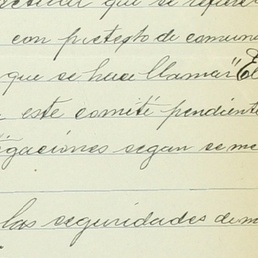 que se refiere
con pretesto de comun
que se hace llamar "El
este comité pendiente
igaciones segun se me
las seguridades de m